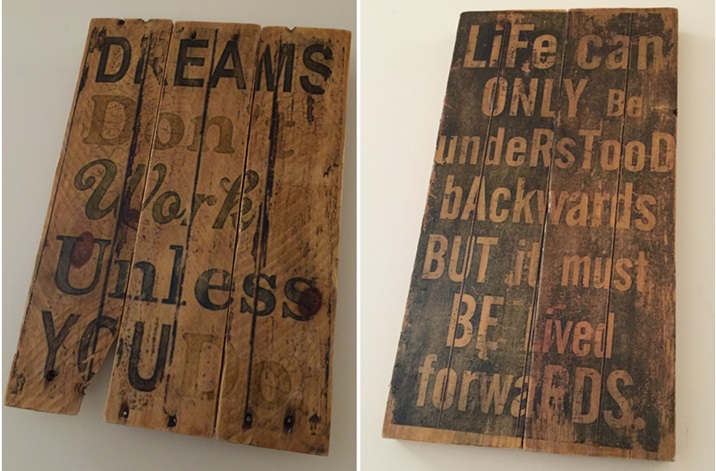 DREAMS
Don't
Work
Unless
YOU Do.
LiFe can
ONLY Be
undeRsTooD
bAckwards
BUT it must
BE lived
forwaRDS.